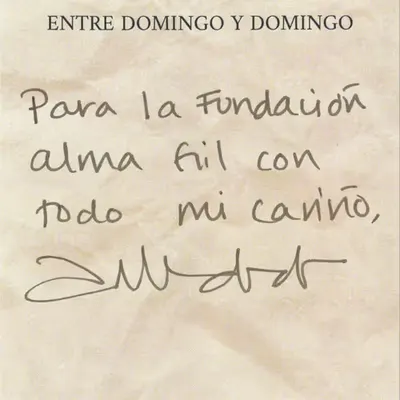 ENTRE DOMINGO Y DOMINGO
Para la Fundación
alma fiil con
todo mi cariño,